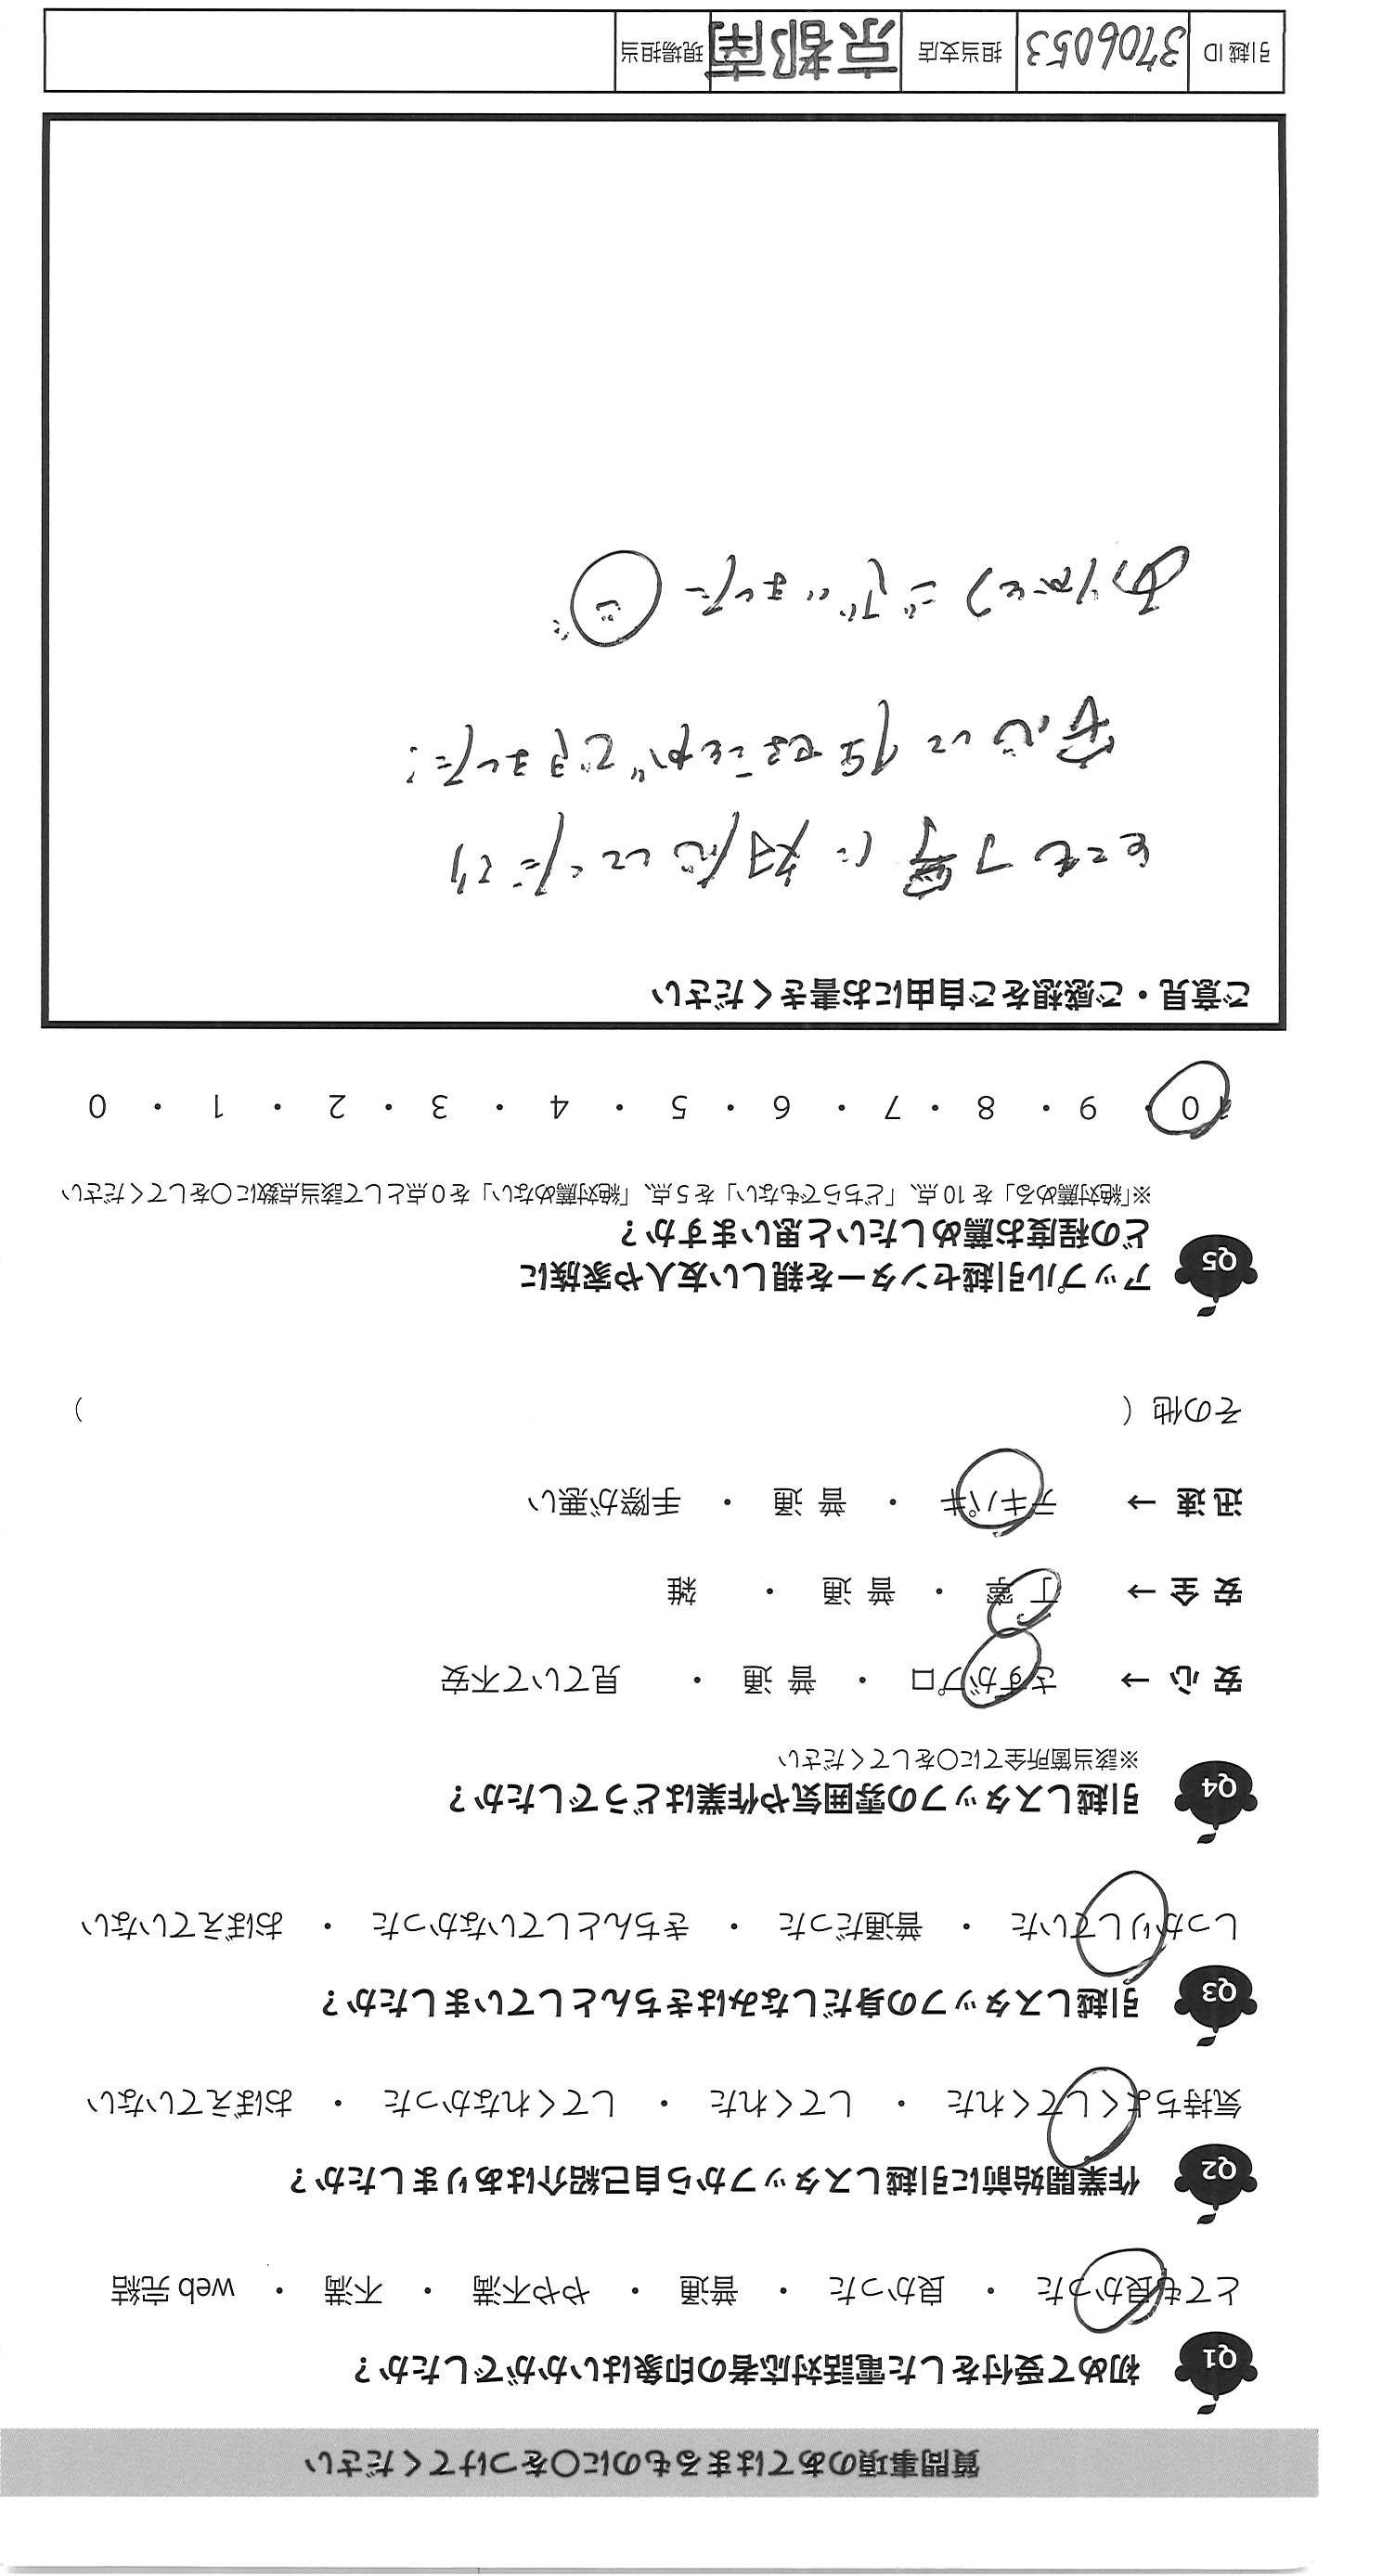 質問事項のあてはまるものに○をつけてください
Q1 初めて受付をした電話対応者の印象はいかがでしたか？
とても良かった ・ 良かった ・ 普通 ・ やや不満 ・ 不満 ・ web 完結
Q2 作業開始前に引越しスタッフから自己紹介はありましたか？
気持ちよくしてくれた ・ してくれた ・ してくれなかった ・ おぼえていない
Q3 引越しスタッフの身だしなみはきちんとしていましたか？
しっかりしていた ・ 普通だった ・ きちんとしていなかった ・ おぼえていない
Q4 引越しスタッフの雰囲気や作業はどうでしたか？
※該当箇所全てに○をしてください
安 心 → さすがプロ ・ 普 通 ・ 見ていて不安
安 全 → 丁 寧 ・ 普 通 ・ 雑
迅 速 → テキパキ ・ 普 通 ・ 手際が悪い
その他（ ）
Q5 アップル引越センターを親しい友人や家族に
どの程度お薦めしたいと思いますか？
※「絶対薦める」を 10 点、「どちらでもない」を 5 点、「絶対薦めない」を 0 点として該当点数に○をしてください
10 ・ 9 ・ 8 ・ 7 ・ 6 ・ 5 ・ 4 ・ 3 ・ 2 ・ 1 ・ 0
ご意見・ご感想をご自由にお書きください
とても丁寧に対応してくださり
安心して任せることができました！
ありがとうございました
引越 ID 3706053 担当支店 京都南 現場担当